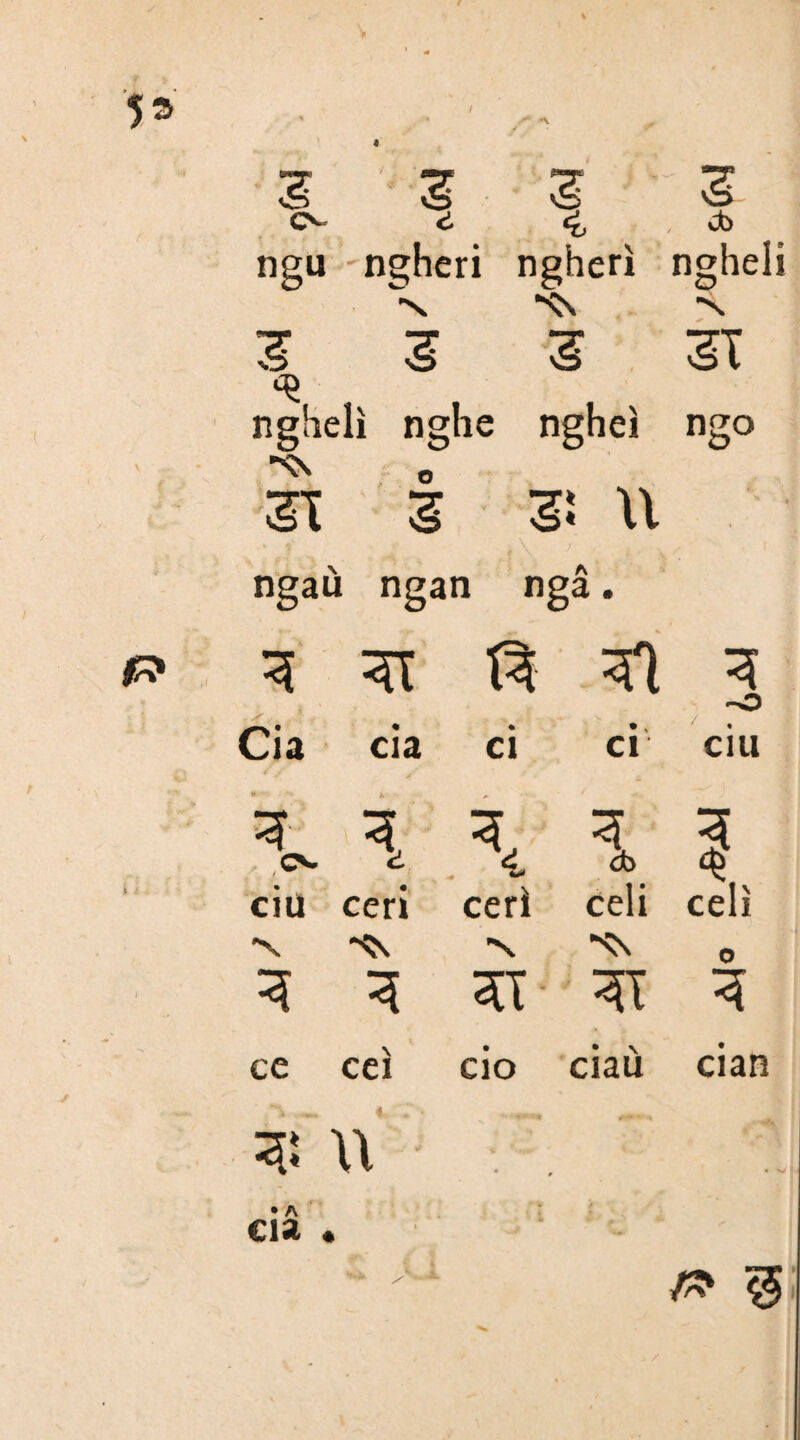 52
ङू ङृ ङॄ ङॢ
ngu ngheri ngherì ngheli
ङॣ ङे ङै ङो
nghelì nghe ngheì ngo
ङौ ङं ङः ॥
ngaù ngan ngâ.
च चा चि ची चु
Cia cia ci ci ciu
चू चृ चॄ चॢ चॣ
ciu ceri cerì celi celì
चे चै चो चौ चं
ce ceì cio ciaù cian
चः ॥
ciâ.
छ